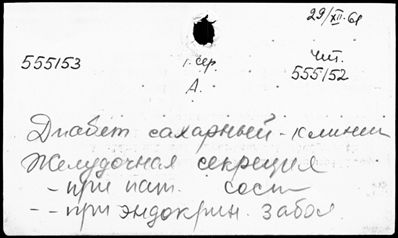 29/XII-61
555153 1. сер. Чит.
555152
А.
Диабет сахарный - клиник
Желудочная секреция
- при пат. сост
- - при эндокрин. забол.